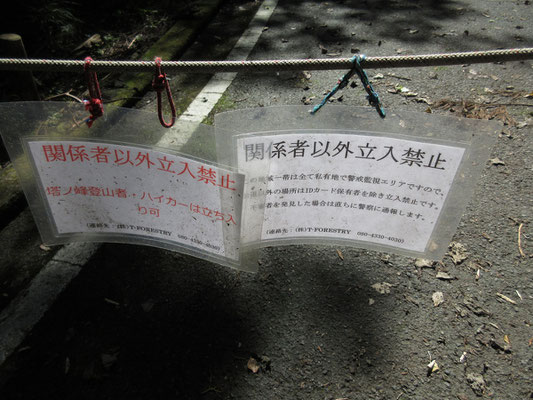 関係者以外立入禁止
塔ノ峰登山者、ハイカーは立ち入
り可
(連絡先 (株)T-FORESTRY 080-4330-4030)
関係者以外立入禁止
域一帯は全て私有地で警戒監視エリアですので、
外の場所はIDカード保有者を除き立入禁止です。
者を発見した場合は直ちに警察に通報します。
(連絡先 (株)T-FORESTRY 080-4330-4030)